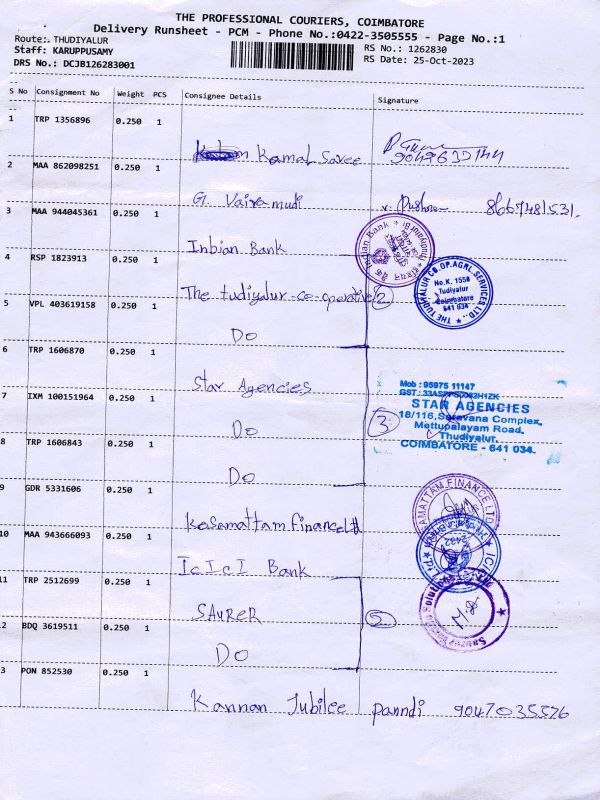 THE PROFESSIONAL COURIERS, COIMBATORE
Delivery Runsheet - PCM - Phone No.:0422-3505555 - Page No.:1
Route:. THUDIYALUR
RS No.: 1262830
Staff: KARUPPUSAMY
RS Date: 25-Oct-2023
DRS No.: DCJB126283001
S No Consignment No Weight PCS Consignee Details Signature
1 TRP 1356896 0.250 1 Kamal Savee
2 MAA 862098251 0.250 1 G. Vairamudi 8667481531.
3 MAA 944045361 0.250 1 Inbian Bank
Indian Bank
4 RSP 1823913 0.250 1 The tudiyalur-co-operative 2
THE TUDIYALUR CO.OP.AGRL.SERVICES LTD.
No.K. 1550
Tudiyalur
Coimbatore
641 034
5 VPL 403619158 0.250 1 Do
6 TRP 1606870 0.250 1 Star Agencies
Mob : 95975 11147
STAR AGENCIES
18/116, Saravana Complex,
Mettupalayam Road,
Thudiyalur,
COIMBATORE - 641 034.
7 IXM 100151964 0.250 1 Do 3
8 TRP 1606843 0.250 1 Do
9 GDR 5331606 0.250 1 Kosamattam finance Ltd
10 MAA 943666093 0.250 1 IcIcI Bank
11 TRP 2512699 0.250 1 SAURER 5
2 BDQ 3619511 0.250 1 Do
3 PON 852530 0.250 1 Kannan Jubilee panndi 9047035576